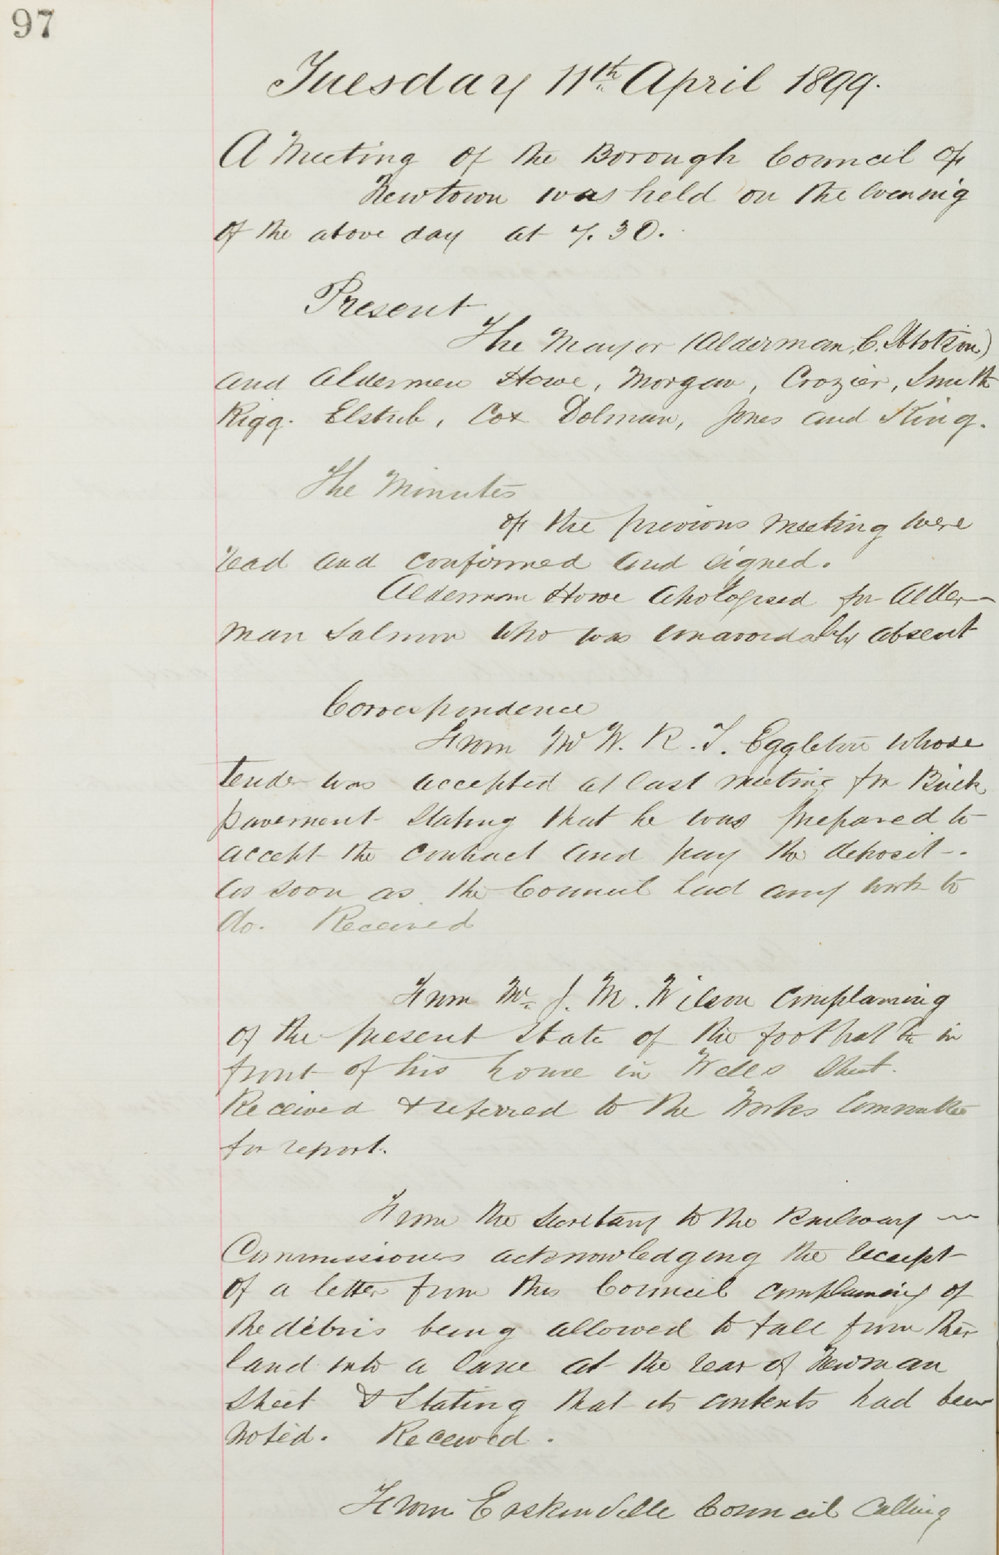 97
Tuesday 11th April 1899.
A Meeting of the Borough Council of
Newtown was held on the evening
of the above day at 7.30.
Present
The Mayor (Alderman, C.
and Aldermen Howe, Morgan, Crozier, Smith
Rigg. Elstub, Cox Dolman, Jones and King.
The Minutes
of the previous meeting were
read and confirmed and signed.
Alderman Howe apologised for Alder-
man Salmon who was unavoidably absent
Correspondence
From Mr W. R. T. Eggleton whose
tender was accepted at last meeting for Brick
pavement stating that he was prepared to
accept the contract and pay the deposit-.
as soon as the Council had any work to
do. Received
From Mr. J. M. Wilson complaining
of the present state of the footpath in
front of his house in Wells Street.
Received & referred to the Works Committee
for report.
From the Secretary to the Railway
Commissioners acknowledging the receipt
of a letter from this Council complaining of
the débris being allowed to fall from their
land into a lane at the rear of Newman
Street & Stating that its contents had been
noted. Received.
From Erskinville Council calling